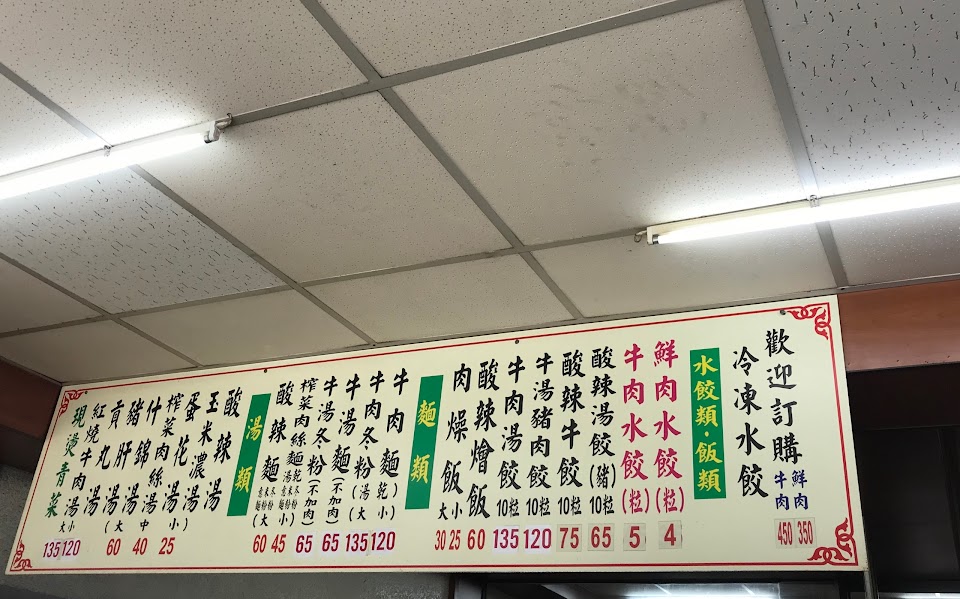 歡迎訂購
冷凍水餃
鮮肉 350
牛肉 450
水餃類・飯類
鮮肉水餃(粒) 4
牛肉水餃(粒) 5
酸辣湯餃(豬)10粒 65
酸辣牛餃10粒 75
牛湯豬肉餃10粒 120
牛肉湯餃10粒 135
酸辣燴飯 60
肉燥飯 大小 30 25
麵類
牛肉麵
牛肉冬粉
(湯乾)
(大小) 135 120
牛湯麵(不加肉) 65
牛湯冬粉(不加肉) 65
榨菜肉絲麵
酸辣麵
(大小) 60 45
湯類
酸辣湯
玉米濃湯
蛋花湯
榨菜肉絲湯
什錦湯
豬肝湯
貢丸湯
(大中小) 60 40 25
紅燒牛肉湯 大小 135 120
現燙青菜